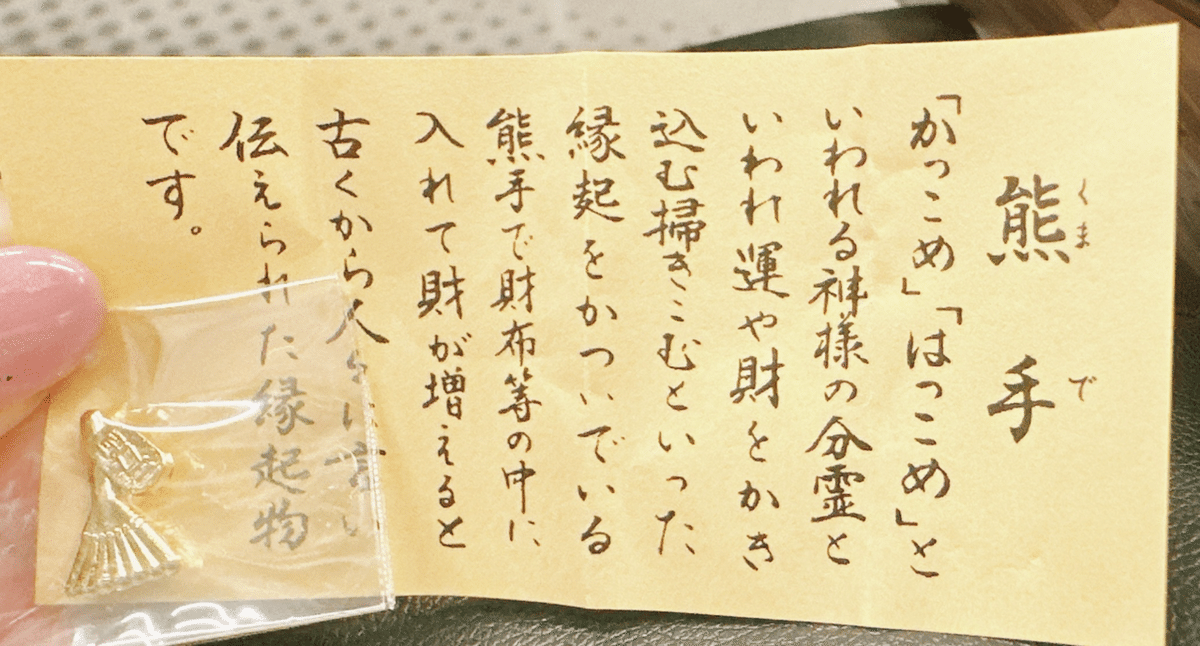 熊手
くまで
「かっこめ」「はっこめ」と
いわれる神様の分霊と
いわれ運や財をかき
込む掃きこむといった
縁起をかついでいる
熊手で財布等の中に
入れて財が増えると
古くから人々に言い
伝えられた縁起物
です。